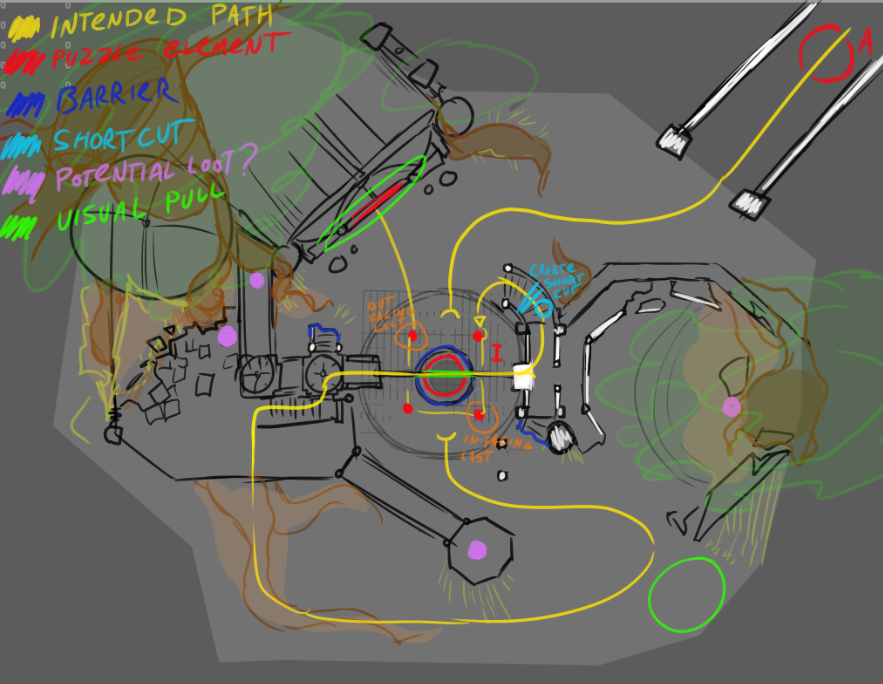 INTENDED PATH
PUZZLE ELEMENT
BARRIER
SHORTCUT
POTENTIAL LOOT?
VISUAL PULL
A
CREATE
SHORT
CUT
OUT
FACING
LAST
I
IN-FACING
LAST